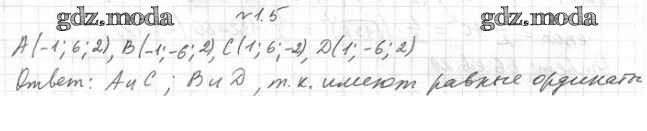 gdz.moda №1.5 gdz.moda
A(-1; 6; 2), B(-1; -6; 2), C(1; 6; -2), D(1; -6; 2)
Ответ: A и C ; B и D , т.к. имеют равные ординаты